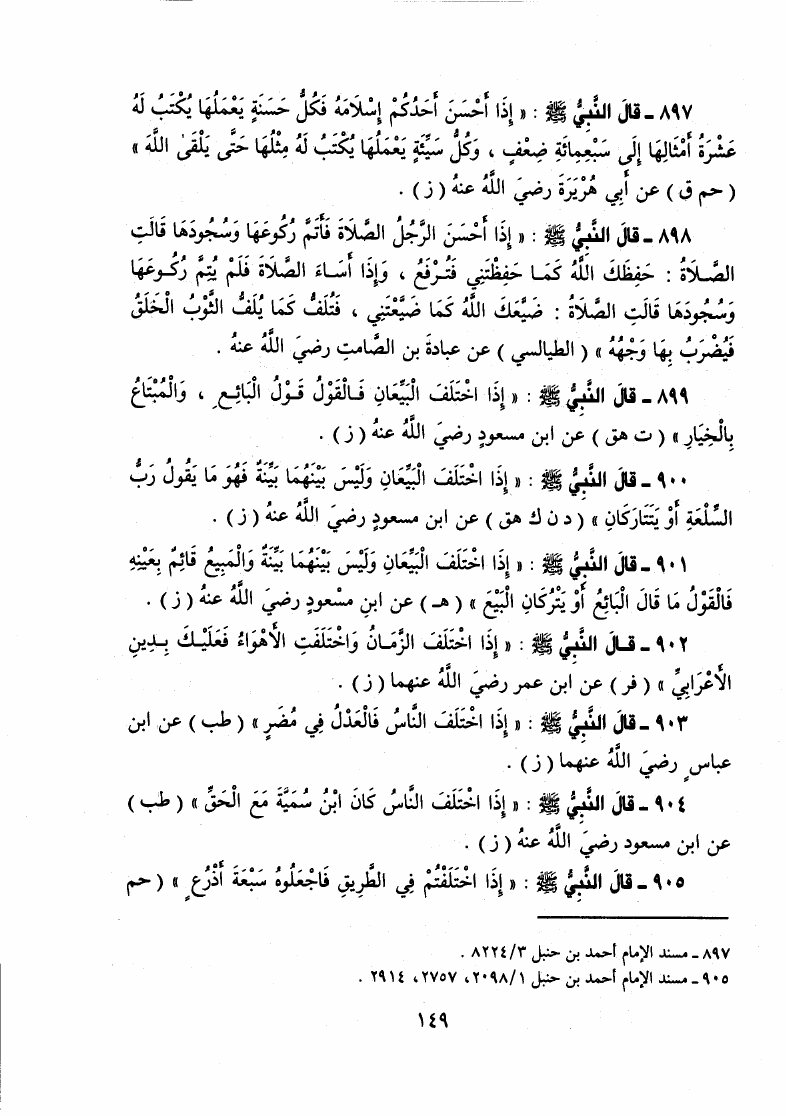 ٨٩٧ ـ قالَ النَّبِيُّ ﷺ : « إِذَا أَحْسَنَ أَحَدُكُمْ إِسْلَامَهُ فَكُلُّ حَسَنَةٍ يَعْمَلُهَا يُكْتَبُ لَهُ
عَشْرَةُ أَمْثَالِهَا إِلَى سَبْعِمِائَةِ ضِعْفٍ ، وَكُلُّ سَيِّئَةٍ يَعْمَلُهَا يُكْتَبُ لَهُ مِثْلُهَا حَتَّى يَلْقَىٰ اللَّهَ »
( حم ق ) عن أَبِي هُرَيْرَةَ رضيَ اللَّهُ عنهُ ( ز ) .
٨٩٨ ـ قالَ النَّبِيُّ ﷺ : « إِذَا أَحْسَنَ الرَّجُلُ الصَّلَاةَ فَأَتَمَّ رُكُوعَهَا وَسُجُودَهَا قَالَتِ
الصَّلَاةُ : حَفِظَكَ اللَّهُ كَمَا حَفِظْتَنِي فَتُرْفَعُ ، وَإِذَا أَسَاءَ الصَّلَاةَ فَلَمْ يُتِمَّ رُكُوعَهَا
وَسُجُودَهَا قَالَتِ الصَّلَاةُ : ضَيَّعَكَ اللَّهُ كَمَا ضَيَّعْتَنِي ، فَتُلَفُّ كَمَا يُلَفُّ الثَّوْبُ الْخَلَقُ
فَيُضْرَبُ بِهَا وَجْهُهُ » ( الطيالسي ) عن عبادةَ بن الصَّامتِ رضيَ اللَّهُ عنهُ .
٨٩٩ ـ قالَ النَّبِيُّ ﷺ : « إِذَا اخْتَلَفَ الْبَيِّعَانِ فَالْقَوْلُ قَوْلُ الْبَائِعِ ، وَالْمُبْتَاعُ
بِالْخِيَارِ » ( ت هق ) عن ابن مسعودٍ رضيَ اللَّهُ عنهُ ( ز ) .
٩٠٠ ـ قالَ النَّبِيُّ ﷺ : « إِذَا اخْتَلَفَ الْبَيِّعَانِ وَلَيْسَ بَيْنَهُمَا بَيِّنَةٌ فَهُوَ مَا يَقُولُ رَبُّ
السِّلْعَةِ أَوْ يَتَتَارَكَانِ » ( د ن ك هق ) عن ابن مسعودٍ رضيَ اللَّهُ عنهُ ( ز ) .
٩٠١ ـ قالَ النَّبِيُّ ﷺ : « إِذَا اخْتَلَفَ الْبَيِّعَانِ وَلَيْسَ بَيْنَهُمَا بَيِّنَةٌ وَالْمَبِيعُ قَائِمٌ بِعَيْنِهِ
فَالْقَوْلُ مَا قَالَ الْبَائِعُ أَوْ يَتْرُكَانِ الْبَيْعَ » ( هـ ) عن ابنِ مسْعودٍ رضيَ اللَّهُ عنهُ ( ز ) .
٩٠٢ ـ قالَ النَّبِيُّ ﷺ : « إِذَا اخْتَلَفَ الزَّمَانُ وَاخْتَلَفَتِ الأَهْوَاءُ فَعَلَيْكَ بِدِينِ
الأَعْرَابِيِّ » ( فر ) عن ابن عمر رضيَ اللَّهُ عنهما ( ز ) .
٩٠٣ ـ قالَ النَّبِيُّ ﷺ : « إِذَا اخْتَلَفَ النَّاسُ فَالْعَدْلُ فِي مُضَرٍ » ( طب ) عن ابن
عباسٍ رضيَ اللَّهُ عنهما ( ز ) .
٩٠٤ ـ قالَ النَّبِيُّ ﷺ : « إِذَا اخْتَلَفَ النَّاسُ كَانَ ابْنُ سُمَيَّةَ مَعَ الْحَقِّ » ( طب )
عن ابن مسعود رضيَ اللَّهُ عنهُ ( ز ) .
٩٠٥ ـ قالَ النَّبِيُّ ﷺ : « إِذَا اخْتَلَفْتُمْ فِي الطَّرِيقِ فَاجْعَلُوهُ سَبْعَةَ أَذْرُعٍ » ( حم
٨٩٧ ـ مسند الإمام أحمد بن حنبل ٨٢٢٤/٣ .
٩٠٥ ـ مسند الإمام أحمد بن حنبل ٢٠٩٨/١، ٢٧٥٧، ٢٩١٤ .
١٤٩